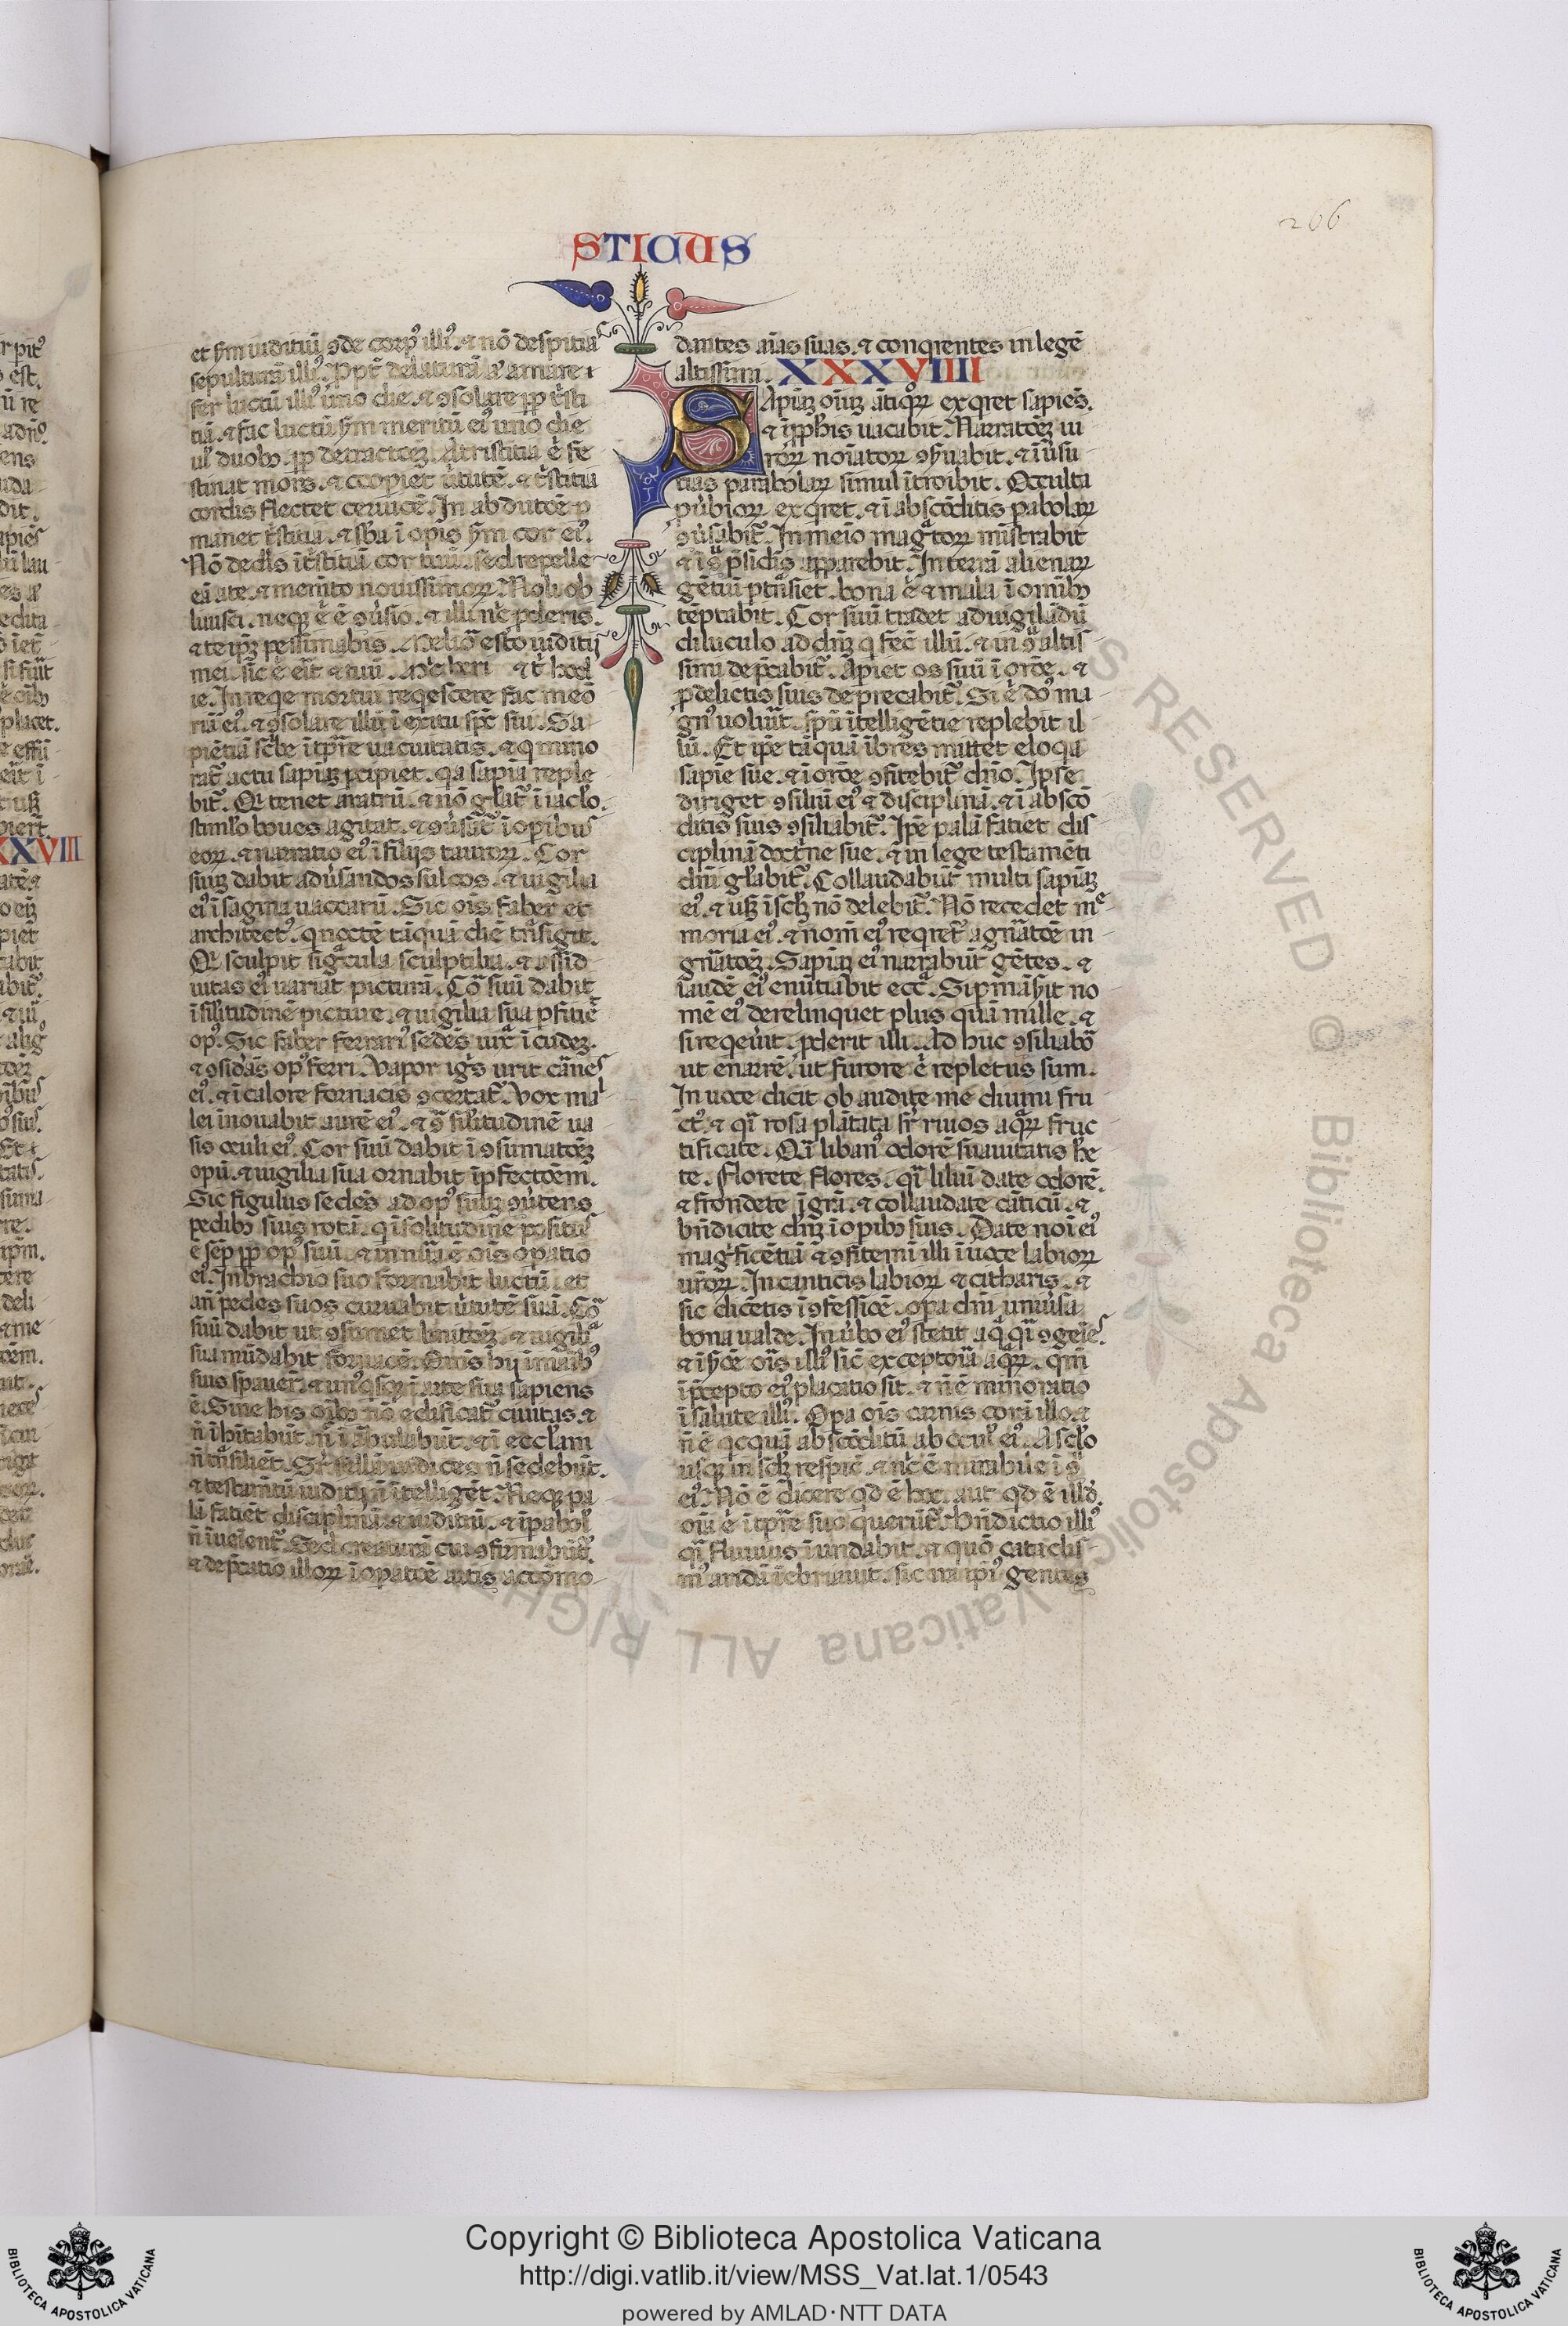 266
STICUS
et ẜm iuditiū ꝯtͤge corpꝰ illiꝰ. ⁊ nō despitia
sepulturā illiꝰ. Ppt̄ delaturā aͭ amare
fer luctū illiꝰ uno die. ⁊ ꝯsolare ꝓp tͥsti
tiā. ⁊ fac luctū ẜm meritū eiꝰ uno die
ul̓ duobꝫ. ꝓp detractōeꝫ. A tristitia .n. fe
stinat mors. ⁊ coopiet ùtutē. ⁊ tͥstitia
cordis flectet ceruicē. In abductōe p
manet tͥstitia. ⁊ sb̄a ī opis ẜm cor eiꝰ.
Nō dedis ī tͥstitiā cor tuū. sed repelle
eā a te. ⁊ memto nouissimoꝝ. Noli ob
liuisci. neqꝫ .n. ē ꝯùsio. ⁊ illi nͨ ꝓderis.
⁊ te ipꝫ pessimabis. Memor esto iuditij
mei. sic .n. eͥt ⁊ tuū. Mͨ heri ⁊ tͥ hod
ie. In reqe mortui reqescere fac meō
riā eiꝰ. ⁊ ꝯsolare illū ī exitu spc̄ sui. Sa
piētiā scͥbe ī tp̄re uacuitatis. ⁊ q mino
rat̄ actu sapiāꝫ ꝑcipiet. qa sapiā reple
bit̄. Qͥ tenet aratrū. ⁊ nō gl̄at̄ ī iacl̓o.
stimlo boues agitat. ⁊ ꝯùsat̄ ī opibus
eoꝝ. ⁊ narratio eiꝰ ī filijs tauroꝝ. Cor
suuꝫ dabit ad ùsandos sulcos. ⁊ uigilia
eiꝰ ī sagina uaccarū. Sic ois faber et
architectꝰ. q noctē tāquā diē tͣsigit.
Qͥ sculpit sigͣcula sculptilia. ⁊ assid
uitas eiꝰ uariat picturā. Coͬ suū dabit
ī silitudinē picture. ⁊ uigilia sua ꝑfitiē
opꝰ. Sic faber ferrariꝰ sedēs iuxͣ ī cudeꝫ.
⁊ ꝯsidāns opꝰ ferri. Vapor igͥs urit cārnes
eiꝰ. ⁊ ī calore fornacis ꝯcertat̄. Vox mal
lei inouabit aurē eiꝰ. ⁊ ꝯͣ silitudinē ua
sis oculi eiꝰ. Cor suū dabit ī ꝯsumatōeꝫ
opū. ⁊ uigilia sua ornabit īpfectoēm.
Sic figulus sedēs ad opꝰ suuꝫ ꝯùtens
pedibꝫ suis rotā. q ī solitudine positus
ē sep̄ ꝓp opꝰ suū. ⁊ innūa ē ois opatio
eiꝰ. In brachio suo formabit luctū. et
an̄ pedes suos curuabit ùtutē suā. Coͬ
suū dabit ut ꝯsumet linitōeꝫ. ⁊ uigilia
sua mūdabit fornacē. Omīs hij ī maībꝰ
suis spauer̄. ⁊ unꝰqsqꝫ ī arte sua sapiens
ē. Sine his oībꝫ nō edificat̄ ciuitas. ⁊
n̄ īhitabūt. n̄ ī ābulabūt. ⁊ ī eccl̓am
n̄ tͣsiliēt. Sͬ sellā iudices n̄ sedebūt.
⁊ testamtū iuditij n̄ ītelligēt. Neqꝫ pa
lā fatiēt disciplinā ⁊ iuditiū. ⁊ ī pabol̓
n̄ īueīent̄. Sed creaturā eui ꝯfirmabūt.
⁊ dep̄catio illoꝝ ī opatōe artis accōmo
dantes aīas suas. ⁊ conqrentes in legē
altissimi. XXXVIIII
SApiāꝫ oīuꝫ ātiqͦꝝ exqret sapiēs.
⁊ ī ꝓphis uacabit. Narratōeꝫ ui
roꝝ noīatoꝝ ꝯẜuabit. ⁊ ī ùsu
tias parabolaꝝ simul ītroibit. Occulta
ꝓùbioꝝ exqret. ⁊ ī abscōditis pabolaꝝ
ꝯùsabit̄. In meīo magͣtoꝝ mīstrabit
⁊ ī ꝯͣ p̄sidis apparebit. In terrā alienaꝝ
gētiū ptͣnsiet. bona .n. ⁊ mala ī omībꝫ
tēptabit. Cor suū tradet ad uigilādū
diluculo ad dn̄ꝫ q fec̄ illū. ⁊ in ꝯͣ altis
simi dep̄cabit̄. Apiet os suū ī orōe. ⁊
ꝓ delictis suis deprecabit̄. Si .n. dn̄s ma
gnꝰ uoluīt. spū ītelligētie replebit il
lū. Et ipē tāquā ībres mittet eloqa
sapīe sue. ⁊ ī orōe ꝯfitebit̄ dn̄o. Ipse
diriget ꝯsiliū eiꝰ ⁊ disciplinā. ⁊ ī abscō
ditis suis ꝯsiliabit̄. Ipē palā fatiet dis
ciplinā doctͥne sue. ⁊ in lege testamēti
dn̄i gl̓abit̄. Collaudabūt multi sapiāꝫ
eiꝰ. ⁊ usqꝫ ī scl̓ꝫ nō delebit̄. Nō recedet me
moria eiꝰ. ⁊ nom̄ eiꝰ reqret̄ a gn̄atōe in
gn̄atōeꝫ. Sapiāꝫ eiꝰ narrabūt gētes. ⁊
laudē eiꝰ enūtiabit ecc̄ͣ. Si ꝑmāẜit no
mē eiꝰ derelinquet plus quā mille. ⁊
si reqeùit. ꝓderit illi. Ad huc ꝯsiliaboͬ
ut enarrē. ut furore .n. repletus sum.
In uoce dicit obaudite me diuini fru
ctꝰ. ⁊ qͣ rosa plātata sͬ riuos aqͣꝝ fruc
tificate. Qͣ libanꝰ odorē suauitatis he
te. Florete flores. qͣ liliū date odorē.
⁊ frondete ī grā. ⁊ collaudate cāticū. ⁊
bn̄dicite dn̄ꝫ ī opibꝫ suis. Date noī eiꝰ
magͥficētiā ⁊ ꝯfitemī illi ī uoce labioꝝ
ur̄oꝝ. In canticis labioꝝ ⁊ citharis. ⁊
sic dicetis ī ꝯfessiōe. opa dn̄i uniùsa
bona ualde. In ùbo eiꝰ stetit aqͣ qͣ ꝯgeīes.
⁊ ī ẜōe oris illiꝰ sic exceptoīa aqͣꝝ. qm̄
ī p̄cepto eiꝰ placatio fit. ⁊ n̄ ē minoratio
ī salute illiꝰ. Opa ois carnis corā illo. ⁊
n̄ ē qcquā abscōditū ab ocul̓ eiꝰ. A scl̓o
usqꝫ in scl̓ꝫ respic̄. ⁊ nͨ ē mirabile ī ꝯͣ
eiꝰ. Nō ē dicere qd ē hoc. aut qd ē illd.
oīa .n. ī tp̄re suo querūt̄. Bn̄dictio illiꝰ
qͣ fluuius īundabit. ⁊ quō cataclis
mꝰ aridā īebriauit. sic ira ipiꝰ gentes
XXXVIII
S RESERVED © Biblioteca Apostolica Vaticana ALL RIGHT
Copyright © Biblioteca Apostolica Vaticana
http://digi.vatlib.it/view/MSS_Vat.lat.1/0543
powered by AMLAD·NTT DATA
BIBLIOTECA APOSTOLICA VATICANA
BIBLIOTECA APOSTOLICA VATICANA